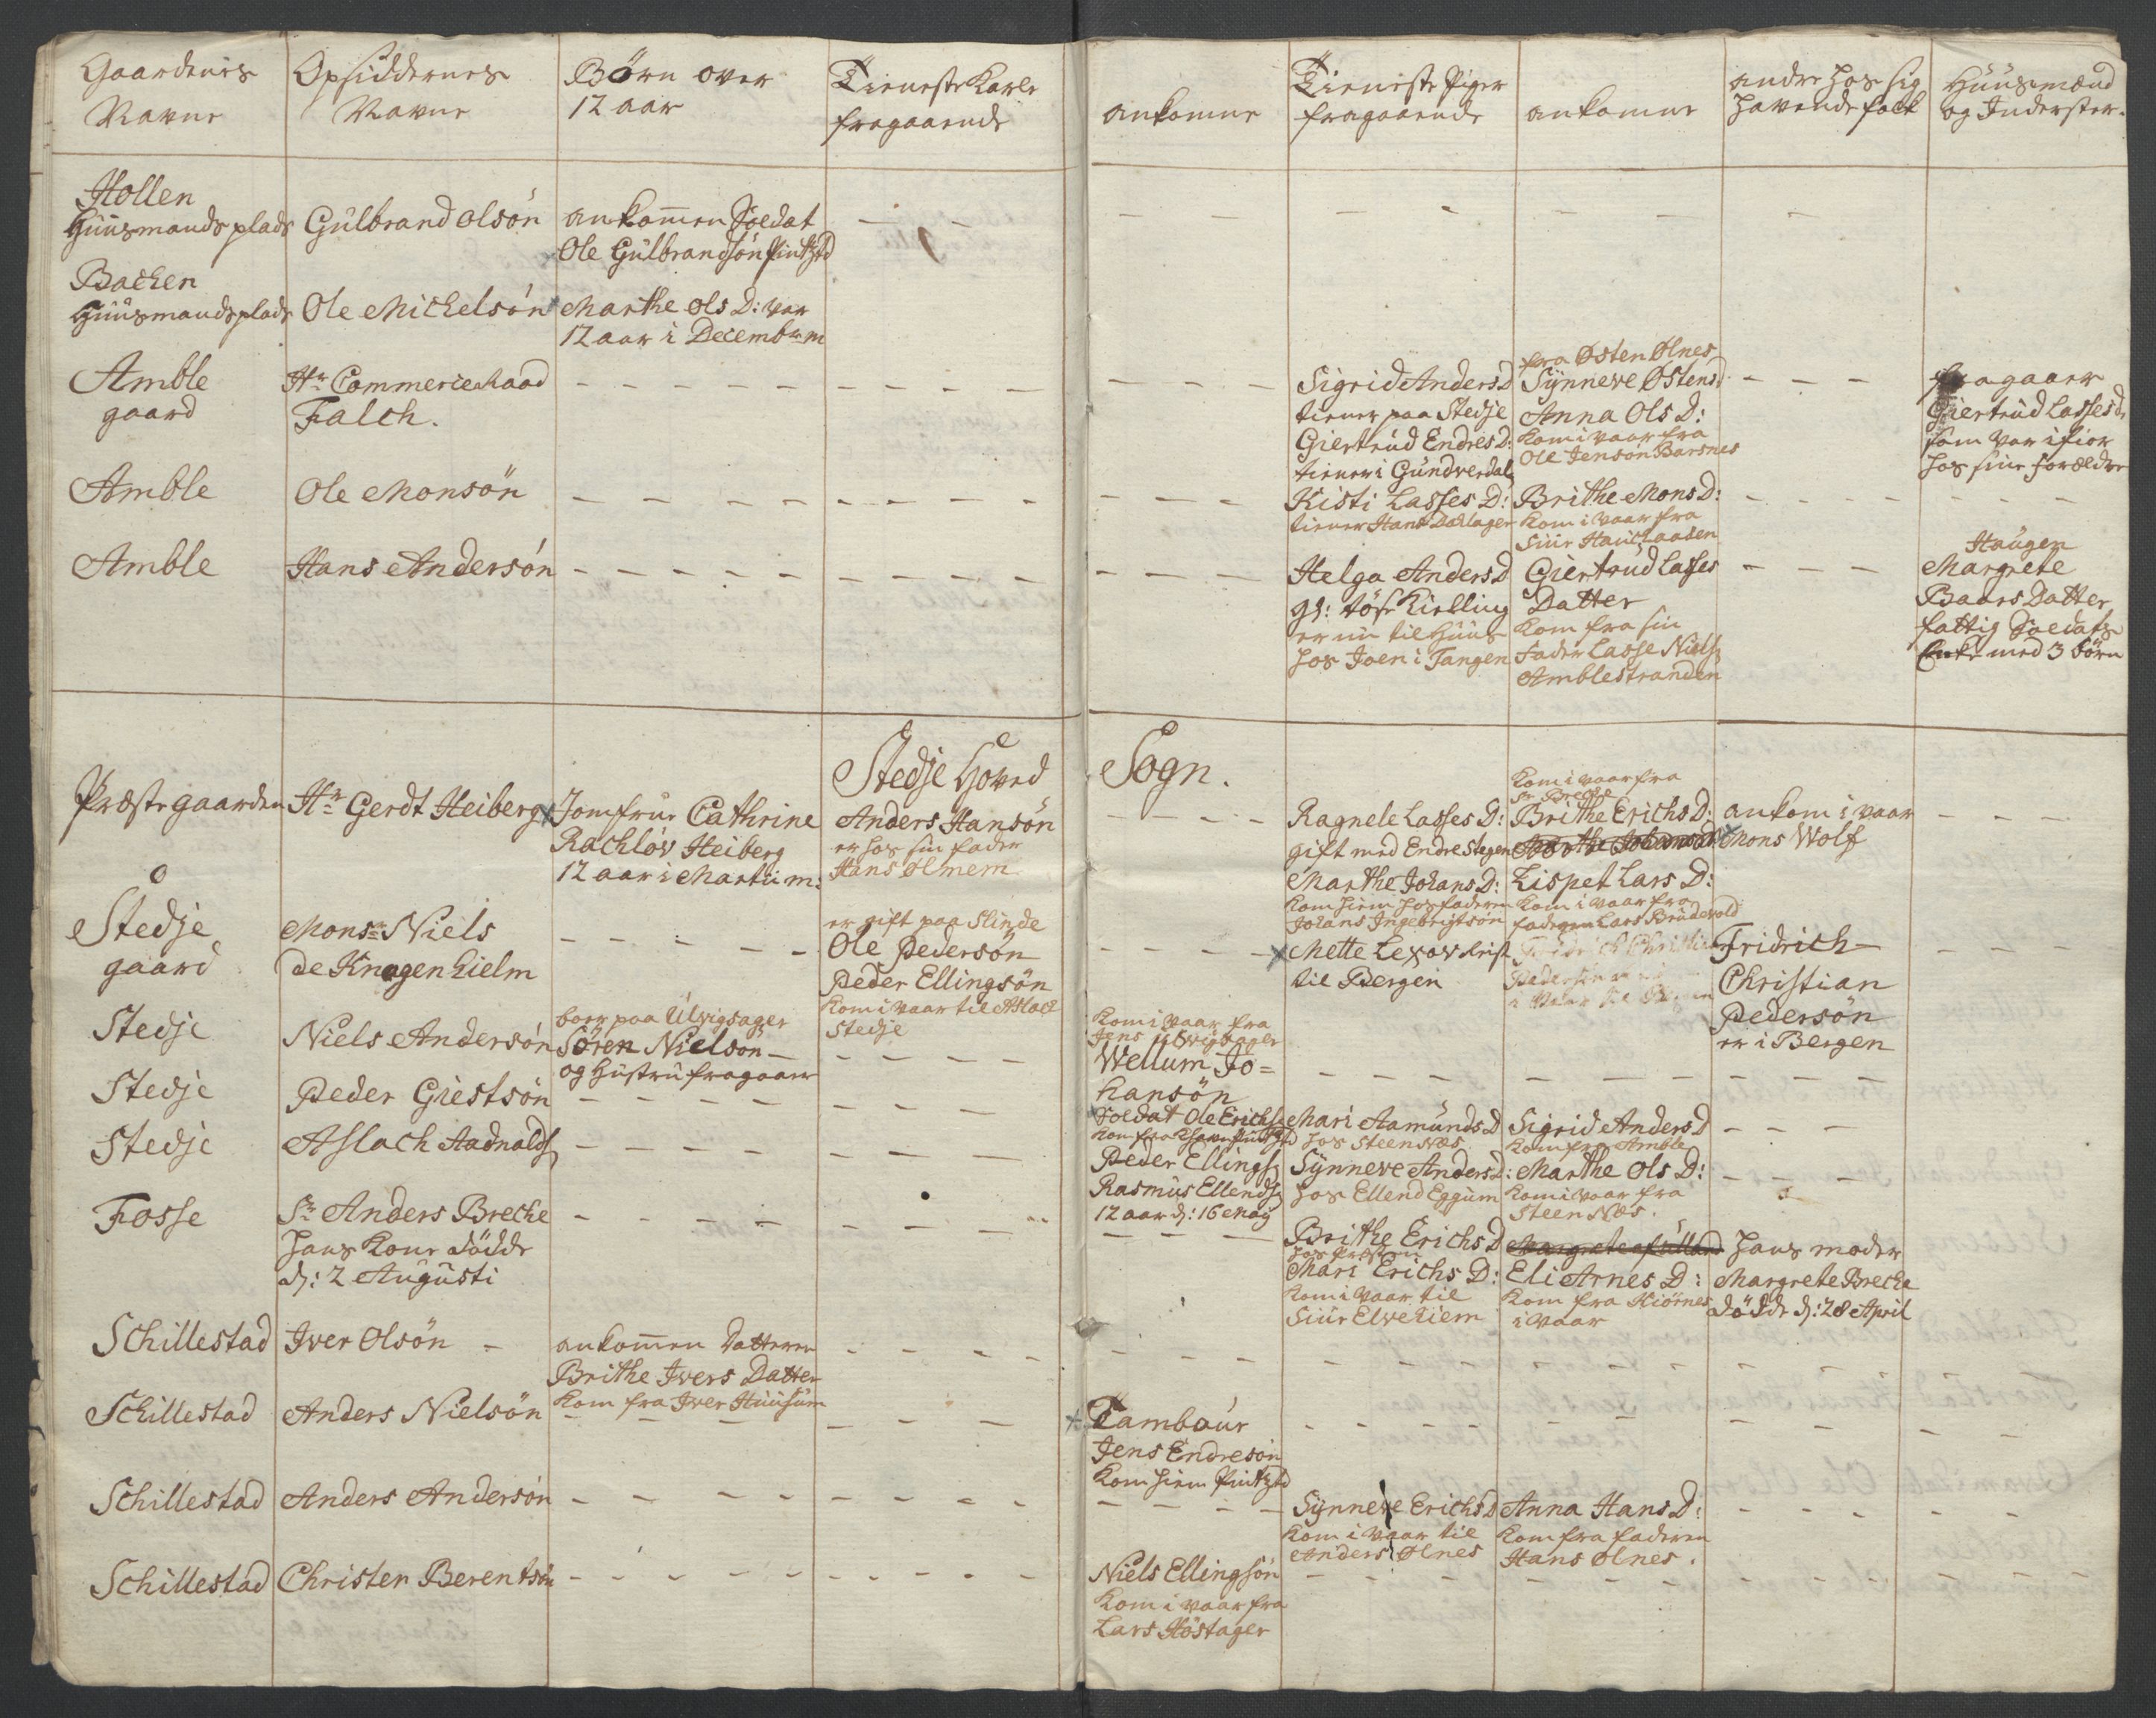 Gaardenes Navne
Opsiddernes Navne
Børn over 12 aar
Tieneste Karle fragaaende
ankomne
Tieneste Piger fragaaende
ankomne
andre hos sig havende folk
Huusmænd og Inderster.
Hollen
Huusmands plads
Gulbrand Olsön
ankommen Soldat
Ole Gulbrandsön
Bachen
Huusmandsplads
Ole Michelsön
Marthe Ols D: var
12 aar i Decembr m
Amble
gaard
Hr Commerce Raad
Falch.
Sigrid Anders D
tiener paa Stedje
Giertrud Endres D:
tiener i Gundverdal
fra Østen Ølnes
Synneve Østens D
Anna Ols D:
kom i vaar fra
Ole Jensön Barsnes
fragaaer
Giertrud Lasses D.
som var ifior
hos sine forældre
Amble
Ole Monsön
Kisti Lasses D:
tiener Hans Dahlager
Brithe Mons D:
kom i vaar fra
Siur Hauchaasen
Amble
Hans Andersön
Helga Anders D
gl: tös Kielling
er nu til Huus
hos Joen i Tangen
Giertrud Lasses
Datter
kom fra sin
Fader Lasse Niels
Amblestranden
Haugen
Margrete
Baars Datter
fattig Soldats
Enke med 3 børn
Stedje Hoved Sogn.
Præstegaarden
Hr Gerdt Heiberg
Jomfrue Cathrine
Rachlöv Heiberg
12 aar i Martii m:
Anders Hansön
er hos sin fader
Hans Ølmem
Ragnele Lasses D:
gift med Endre Stegen
Marthe Johans D:
kom hiem hos faderen
Johans Ingebrigtsön
kom i vaar fra
Sr Breche
Brithe Erichs D:
Marthe Johans D
Lispet Lars D:
kom i vaar fra
faderen Lars Brudevold
ankom i vaar
Mons Wolf
Stedje
gaard
Monsr Niels
de Knagenhielm
er gift paa Slinde
Ole Pedersön
Peder Ellingsön
kom i vaar til Aslach
Stedje
Mette Lexov Reist
til Bergen
Fridrich Christian
Pedersön
i vaar til Bergen
Fridrich
Christian
Pedersön
er i Bergen
Stedje
Niels Andersön
boer paa Ulvigsager
Sören Nielsön
og Hustru fragaaer
kom i vaar fra
Jens Ulvigsager
Wellum Jo=
hansön
Stedje
Peder Giestsön
Soldat Ole Erichs
Mari Aamunds D
hos Steen Næs
Sigrid Anders D
kom fra Amble
Stedje
Aslach Aadnalds
Peder Ellings
Rasmus Ellends
12 aar d: 16 May
Synneve Anders D:
hos Ellend Eggum
Marthe Ols D:
kom i vaar fra
Steen Næs.
Fosse
Sr Anders Breche
hans Kone döde
d: 2 Augusti
Brithe Erichs D
hos Præsten
Mari Erichs D:
kom i vaar til
Siur Elvehiem
Eli Arnes D:
kom fra Kiörnes
i vaar
hans moder
Margrete Breche
döde d: 28 April
Schillestad
Iver Olsön
ankommen Datteren
Brithe Ivers Datter
kom fra Iver Huusum
Schillestad
Anders Nielsön
Tambour
Jens Endresön
kom hiem
Schillestad
Anders Andersön
Synneve Erichs D
kom i vaar til
Anders Ølnes
Anna Hans D:
kom fra faderen
Hans Ølnes.
Schillestad
Christen Berentsön
Niels Ellingsön
kom i vaar fra
Lars Höstager